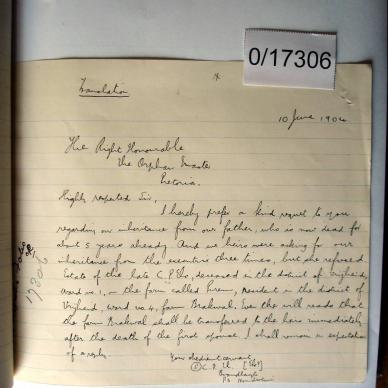 0/17306
Translation
10 June 1904
The Right Honourable
the Orphan Master
Pretoria.
Highly respected Sir,
I hereby prefer a kind request to you
regarding our inheritance from our father, who is now dead for
about 5 years already. And we heirs were asking for our
inheritance from the executrix three times, but she refused
Estate of the late C. P. deceased in the district of Vrijheid,
ward no 1, on the farm called resident in the district of
Vrijheid, ward no 4, farm Brakwal. Even the will reads that
the farm Brakwal shall be transferred to the heirs immediately
after the death of the first spouse. I shall remain in expectation
of a reply.
Your obedient servant
C. P.